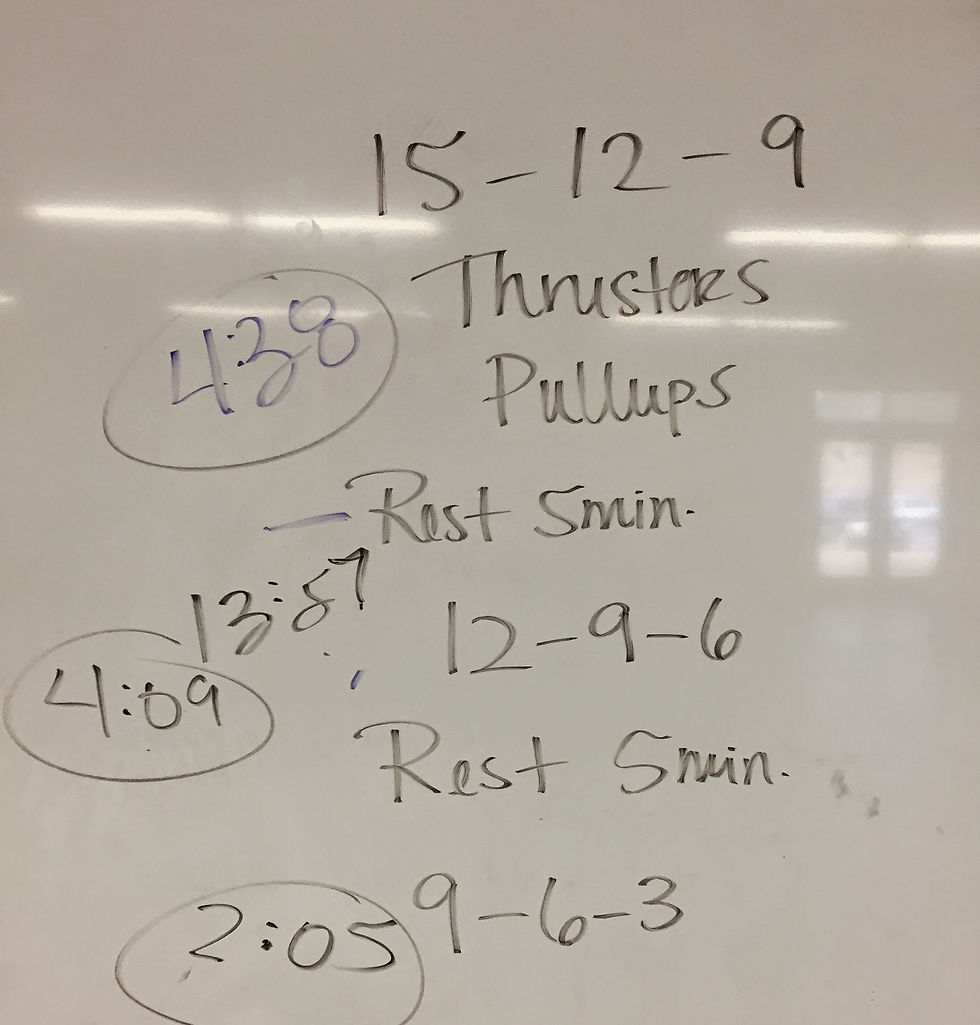 15-12-9
Thrusters
4:38
Pullups
— Rest 5min.
13:57
12-9-6
4:09
Rest 5min.
2:05 9-6-3